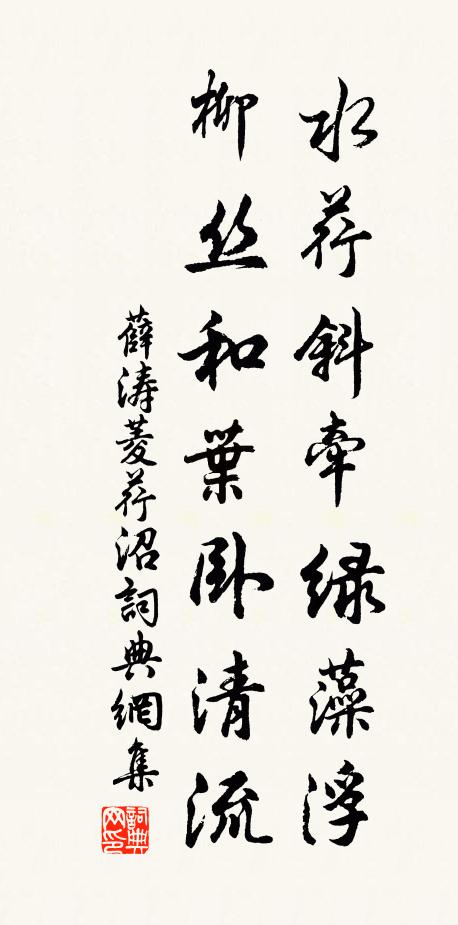 水荇斜牵绿藻浮
柳丝和葉卧清流
薛涛菱荇沼詞典網集
詞典网印